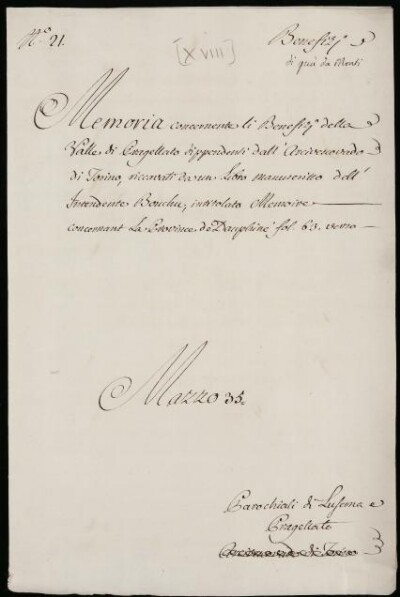 N.º 21.
[XVIII]
Benefizj
di quà da Monti
Memoria concernente li Benefizj della
Valle di Pragellato dippendenti dall' Arcivescovado
di Torino, riccavati da un Libro manuscritto dell'
Intendente Bouchu, intitolato Memoire
concernant La Province de Dauphiné fol. 63. verso
Mazzo 35.
Parochiali di Luserna e
Pragellato
Arcivescovado di Torino